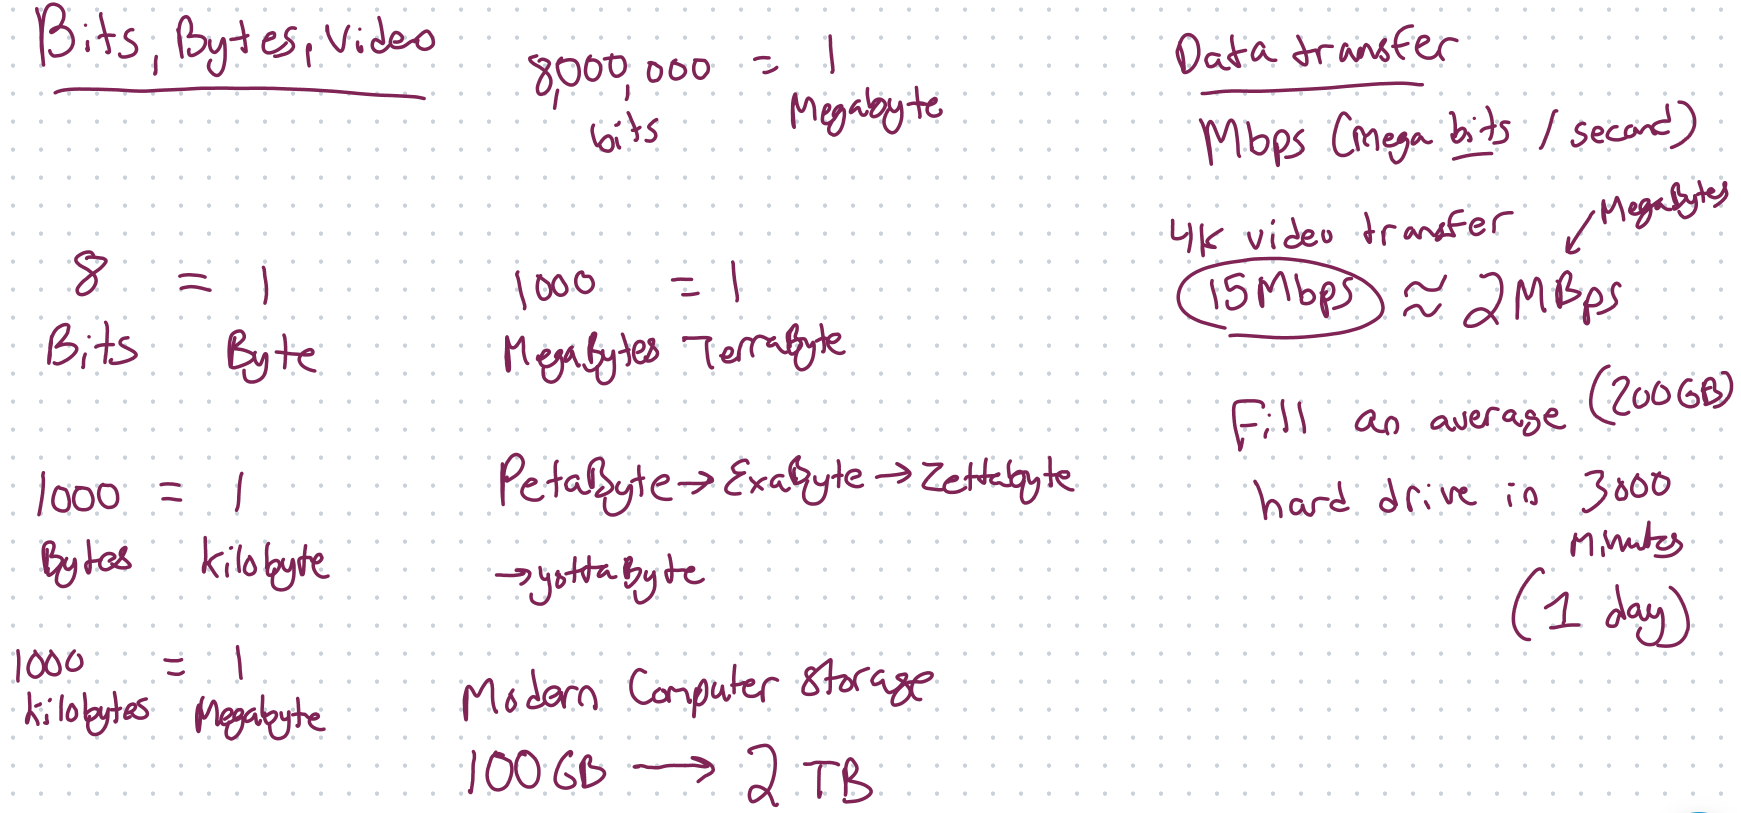 Bits, Bytes, Video
8 = 1
Bits Byte
1000 = 1
Bytes kilobyte
1000 = 1
kilobytes Megabyte
8,000,000 = 1
bits Megabyte
1000 = 1
MegaBytes TerraByte
PetaByte → ExaByte → Zettabyte
→ yottaByte
Modern Computer Storage
100GB → 2 TB
Data transfer
Mbps (Mega bits / second)
4K video transfer
MegaBytes
15Mbps ≈ 2MBps
Fill an average (200GB)
hard drive in 3000
Minutes
(1 day)